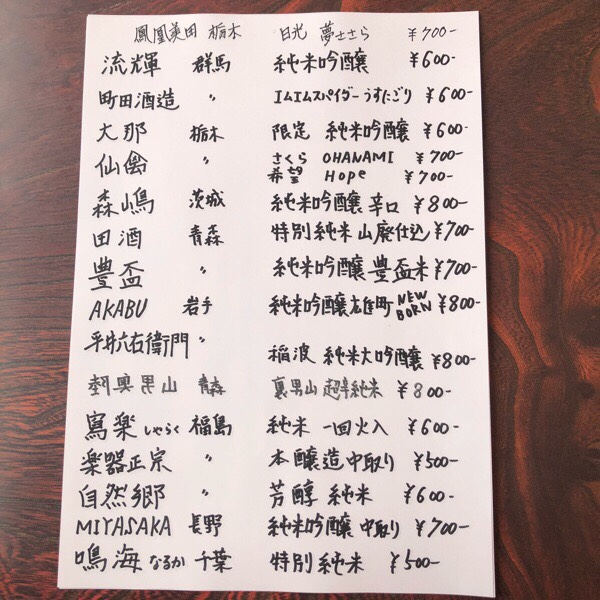 鳳凰美田 栃木 日光 夢ささら ¥700-
流輝 群馬 純米吟醸 ¥600-
町田酒造 〃 エムエムスパイダーうすにごり ¥600-
大那 栃木 限定 純米吟醸 ¥600-
仙禽 〃 さくら OHANAMI ¥700-
希望 Hope ¥700-
森嶋 茨城 純米吟醸 辛口 ¥800-
田酒 青森 特別純米 山廃仕込 ¥700-
豊盃 〃 純米吟醸 豊盃米 ¥700-
AKABU 岩手 純米吟醸 雄町 NEW BORN ¥800-
平井六右衛門 〃 稲波 純米大吟醸 ¥800-
陸奥男山 青森 裏男山 超辛純米 ¥800-
寫楽 しゃらく 福島 純米 一回火入 ¥600-
楽器正宗 〃 本醸造 中取り ¥500-
自然郷 〃 芳醇 純米 ¥600-
MIYASAKA 長野 純米吟醸 中取り ¥700-
鳴海 なるか 千葉 特別純米 ¥500-